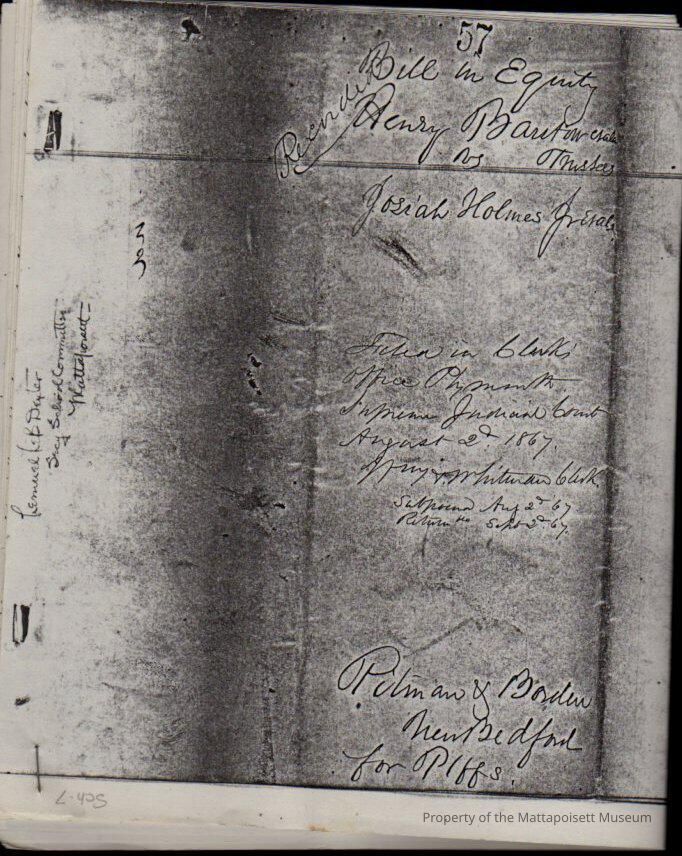 57
Bill in Equity
Recorded
Henry Barstow et als
vs Trustees
Josiah Holmes Jr et al.
Filed in Clerk's
Office Plymouth
Supreme Judicial Court
August 2d. 1867.
Whitman Clerk.
Subpoena Aug 2d 67
Return Sept 2d 67.
Pitman & Borden
New Bedford
for Plffs.
Lemuel L B Dexter
Secy School Committee
Mattapoisett
Sch-7
Property of the Mattapoisett Museum